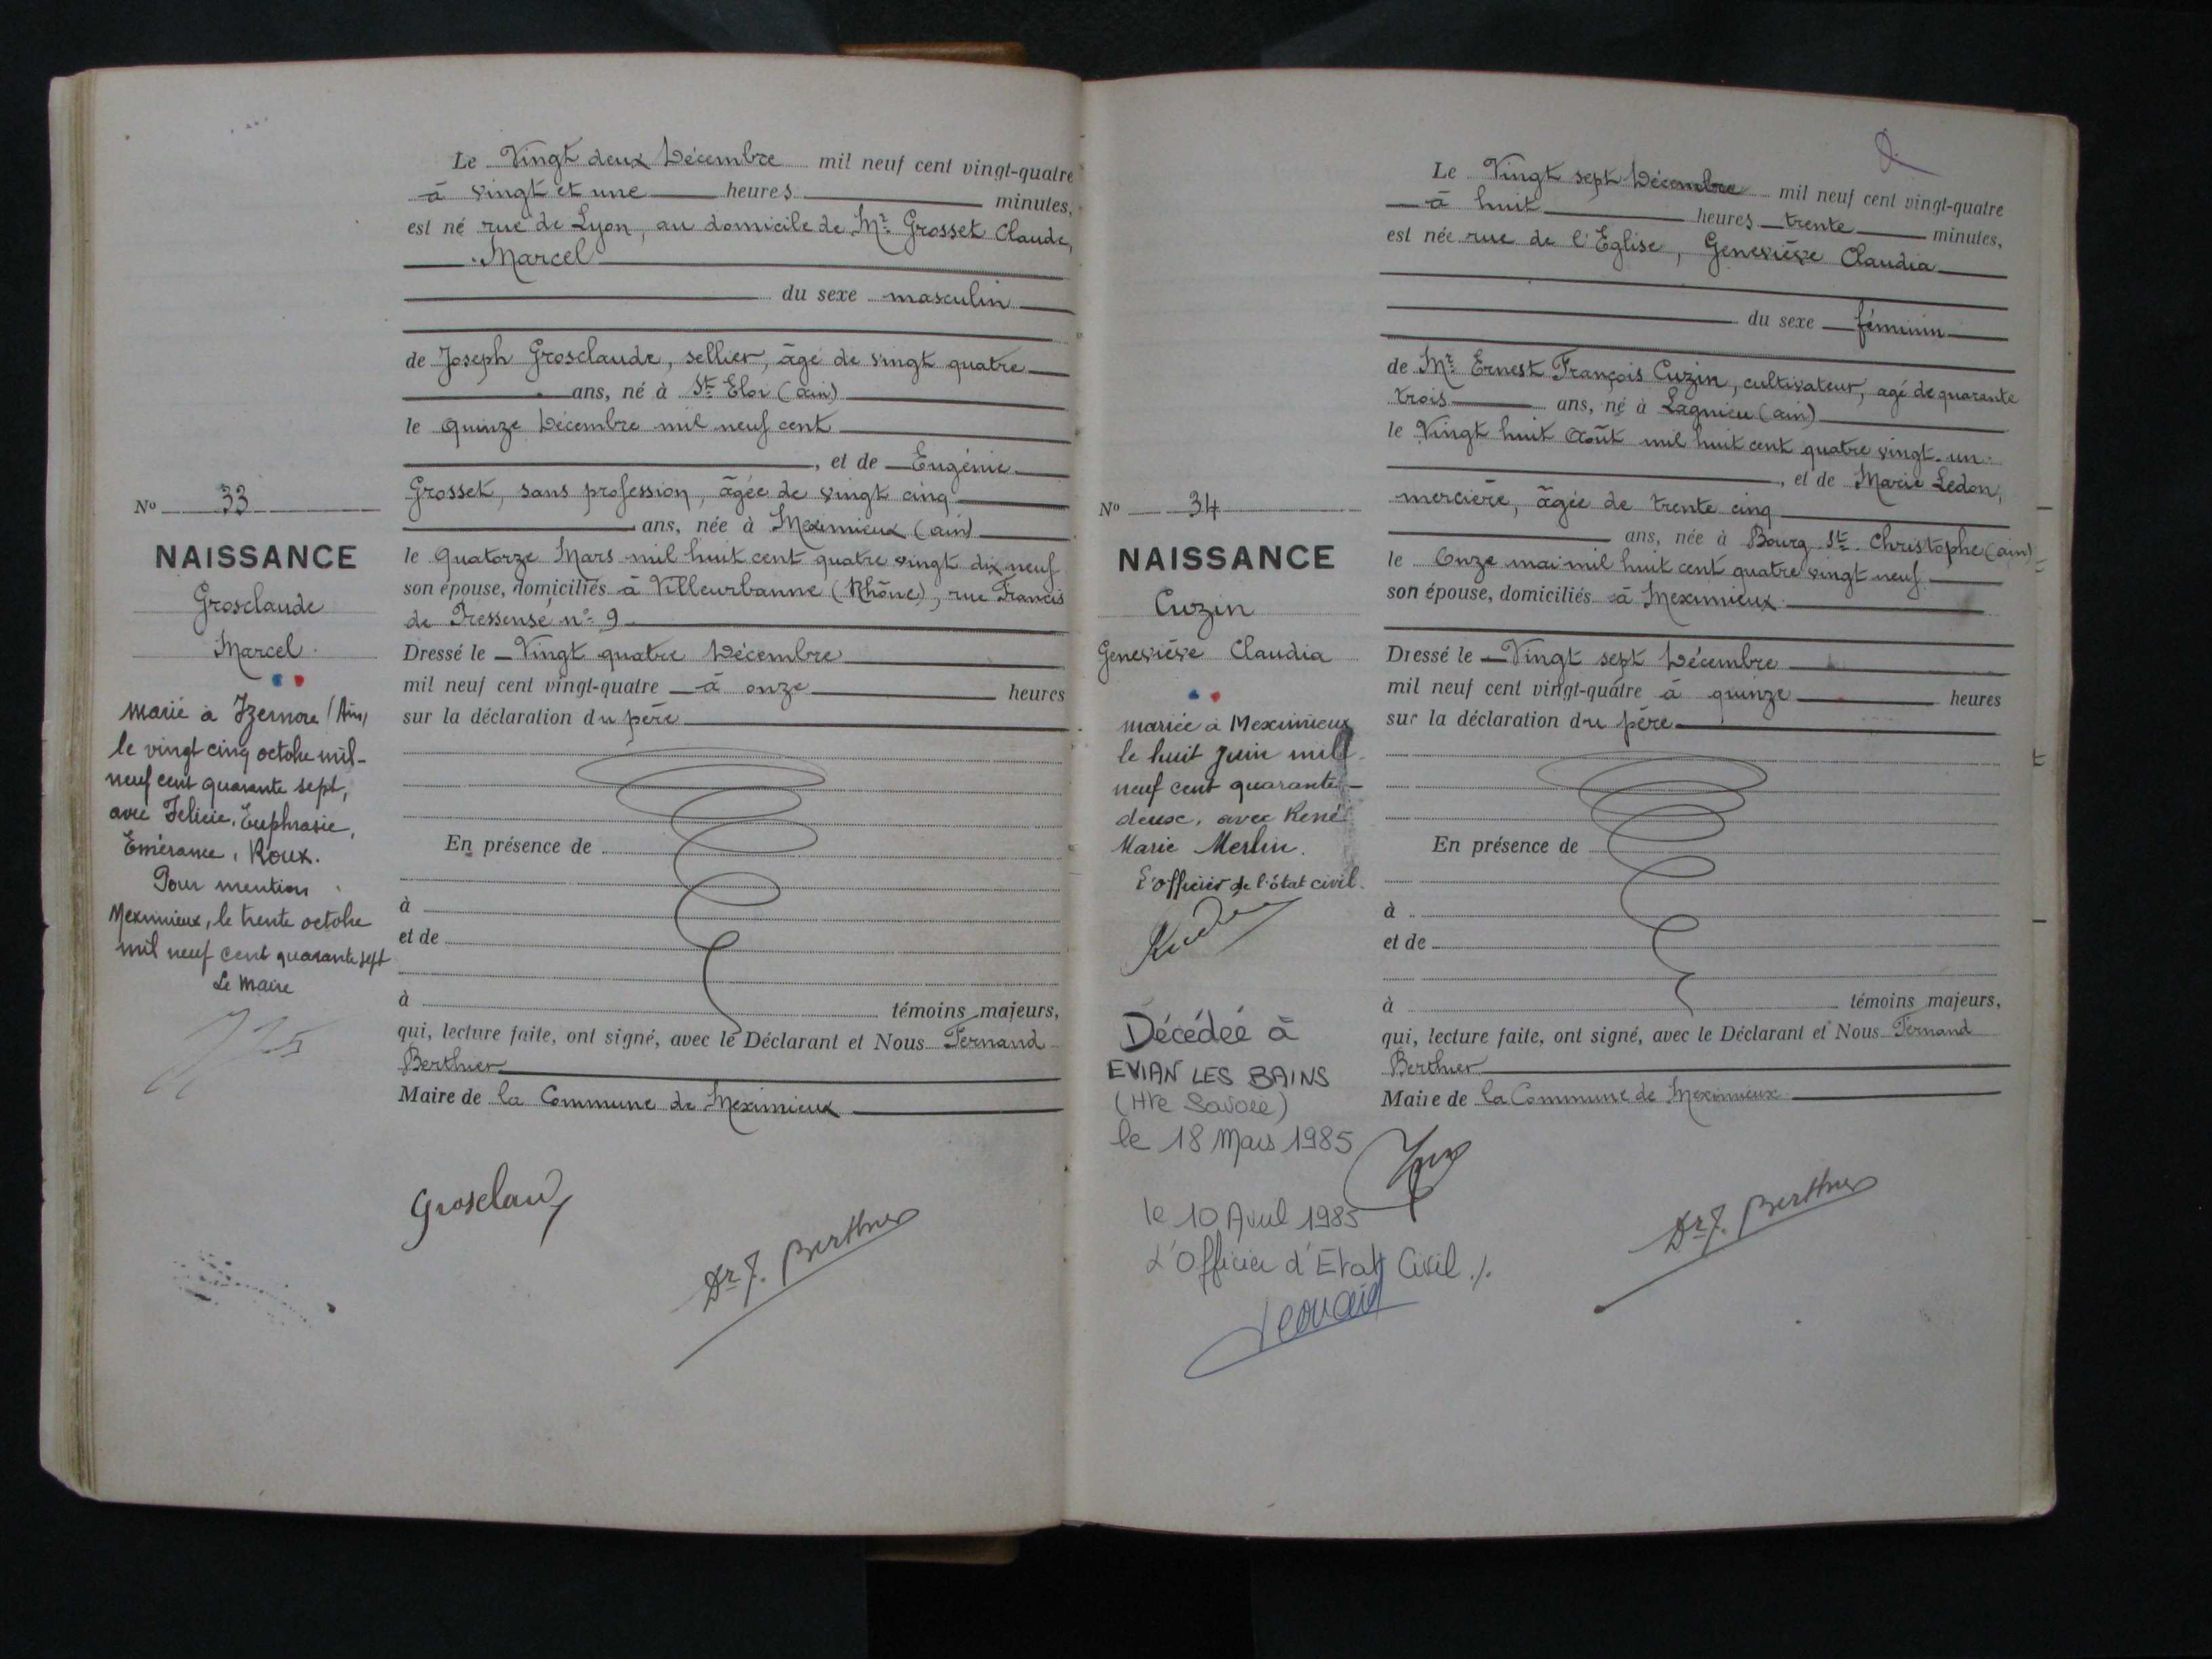 Le Vingt deux Décembre mil neuf cent vingt-quatre
à vingt et une heures minutes,
est né rue de Lyon, au domicile de Mr Grosset Claude,
Marcel
du sexe masculin
de Joseph Grosclaude, sellier, âgé de vingt quatre
ans, né à St Eloi (ain)
le quinze Décembre mil neuf cent
, et de Eugénie
Grosset, sans profession, âgée de vingt cinq
ans, née à Meximieux (ain)
le quatorze Mars mil huit cent quatre vingt dix neuf
son épouse, domiciliés à Villeurbanne (Rhône), rue Francis
de Pressensé n° 9
Dressé le Vingt quatre Décembre
mil neuf cent vingt-quatre à onze heures
sur la déclaration du père
En présence de
à
et de
à témoins majeurs,
qui, lecture faite, ont signé, avec le Déclarant et Nous Fernand
Berthier
Maire de la Commune de Meximieux
Grosclaude
Dr F. Berthier
No 33
NAISSANCE
Grosclaude
Marcel
marié à Izernore (Ain)
le vingt cinq octobre mil-
neuf cent quarante sept,
avec Felicie, Euphrasie,
Emérance, Roux.
Pour mention
Meximieux, le trente octobre
mil neuf cent quarante sept
Le Maire
No 34
NAISSANCE
Cuzin
Geneviève Claudia
mariée à Meximieux
le huit juin mil
neuf cent quarante-
deux, avec René
Marie Merlin.
L'officier de l'état civil.
Décédée à
EVIAN LES BAINS
(Hte Savoie)
le 18 Mars 1985
le 10 Avril 1985
L'Officier d'Etat Civil
Le Vingt sept Décembre mil neuf cent vingt-quatre
à huit heures trente minutes,
est née rue de l'Eglise, Geneviève Claudia
du sexe féminin
de Mr Ernest François Cuzin, cultivateur, agé de quarante
trois ans, né à Lagnieu (ain)
le Vingt huit Août mil huit cent quatre vingt-un
, et de Marie Ledon,
mercière, âgée de trente cinq
ans, née à Bourg St Christophe (ain)
le Onze mai mil huit cent quatre vingt neuf
son épouse, domiciliés à Meximieux
Dressé le Vingt sept Décembre
mil neuf cent vingt-quatre à quinze heures
sur la déclaration du père
En présence de
à
et de
à témoins majeurs,
qui, lecture faite, ont signé, avec le Déclarant et Nous Fernand
Berthier
Maire de la Commune de Meximieux
Dr F. Berthier